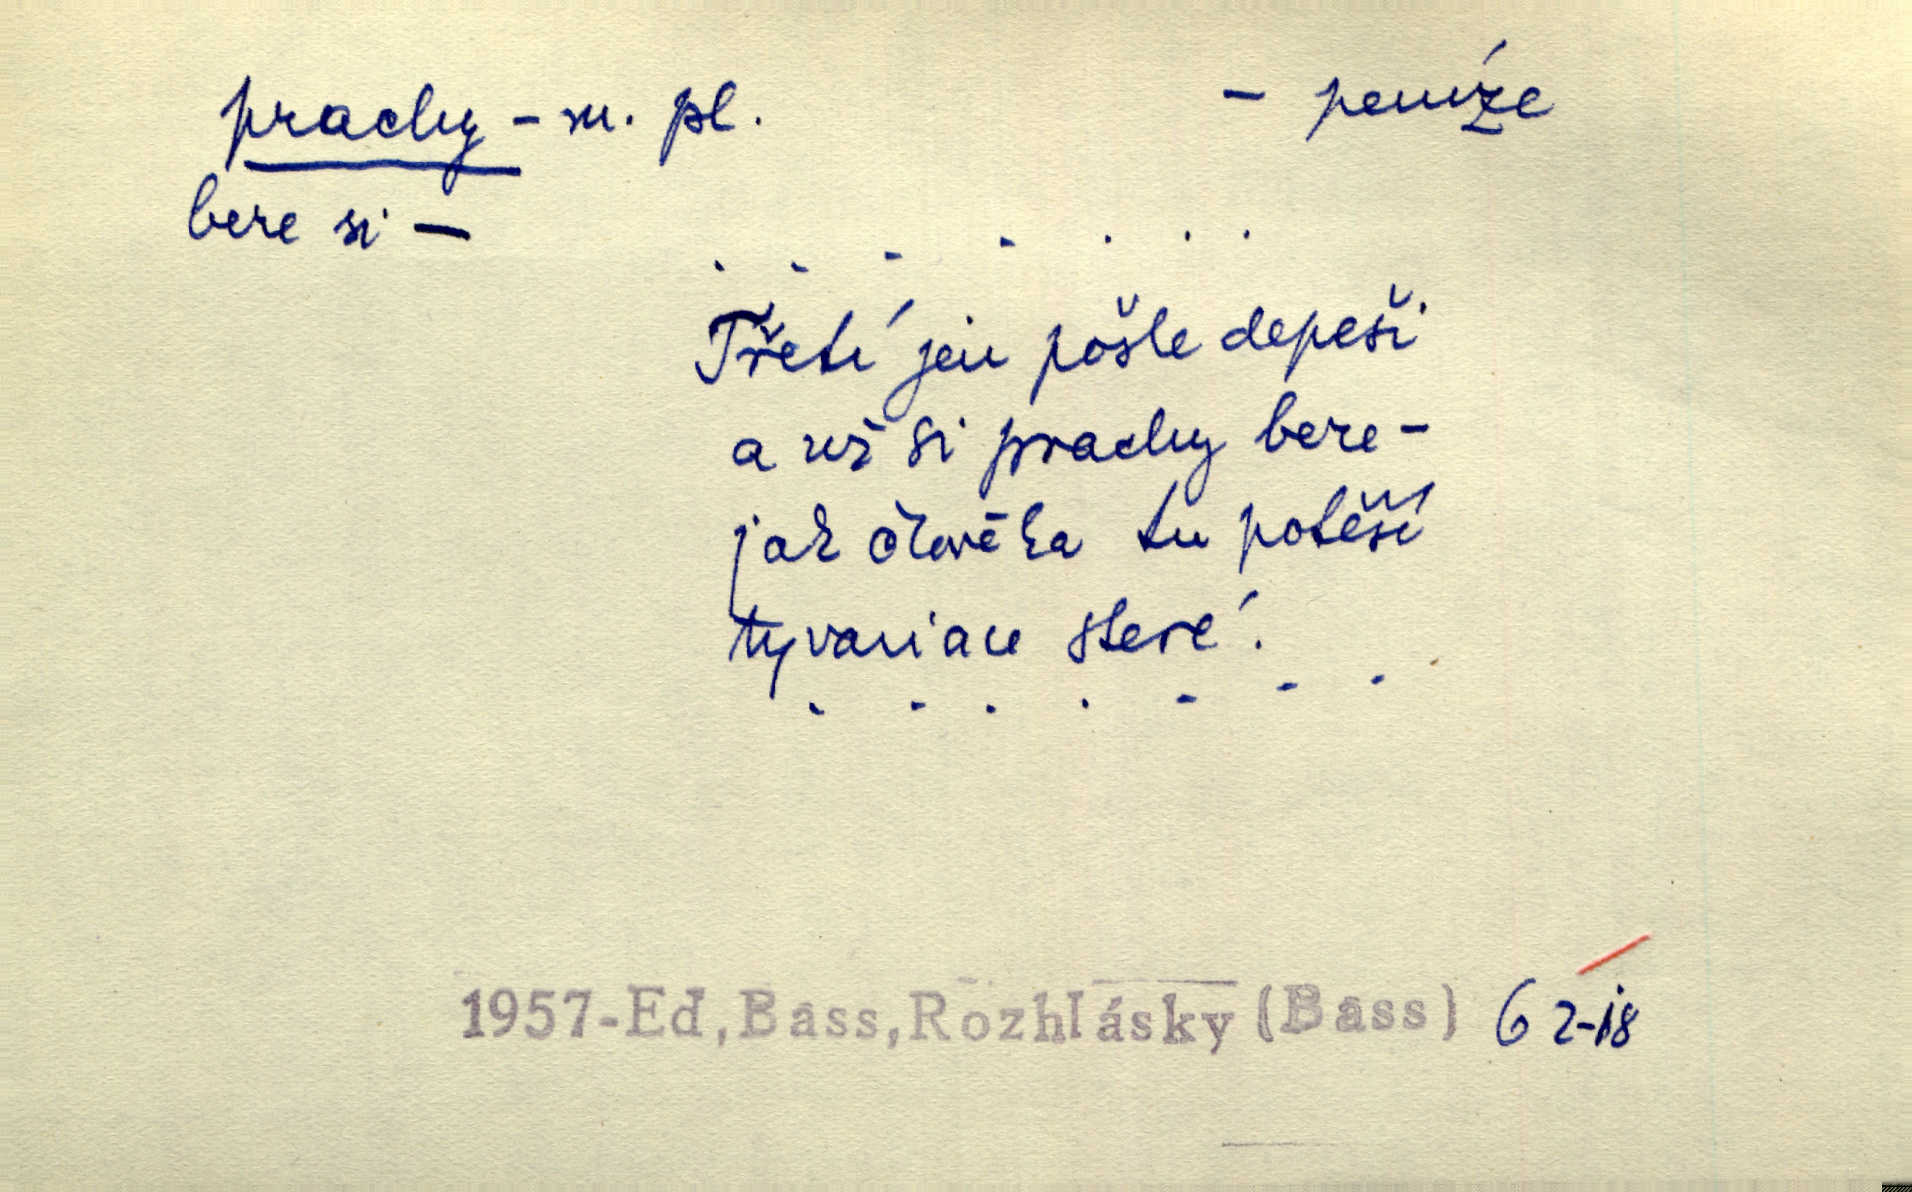 prachy - m. pl. - peníze
bere si —
. . . . . . .
Třetí jen pošle depeši
a už si prachy bere -
jak člověka tu potěší
ty variace steré!
. . . . . . .
1957-Ed,Bass,Rozhlásky (Bass) 62-18